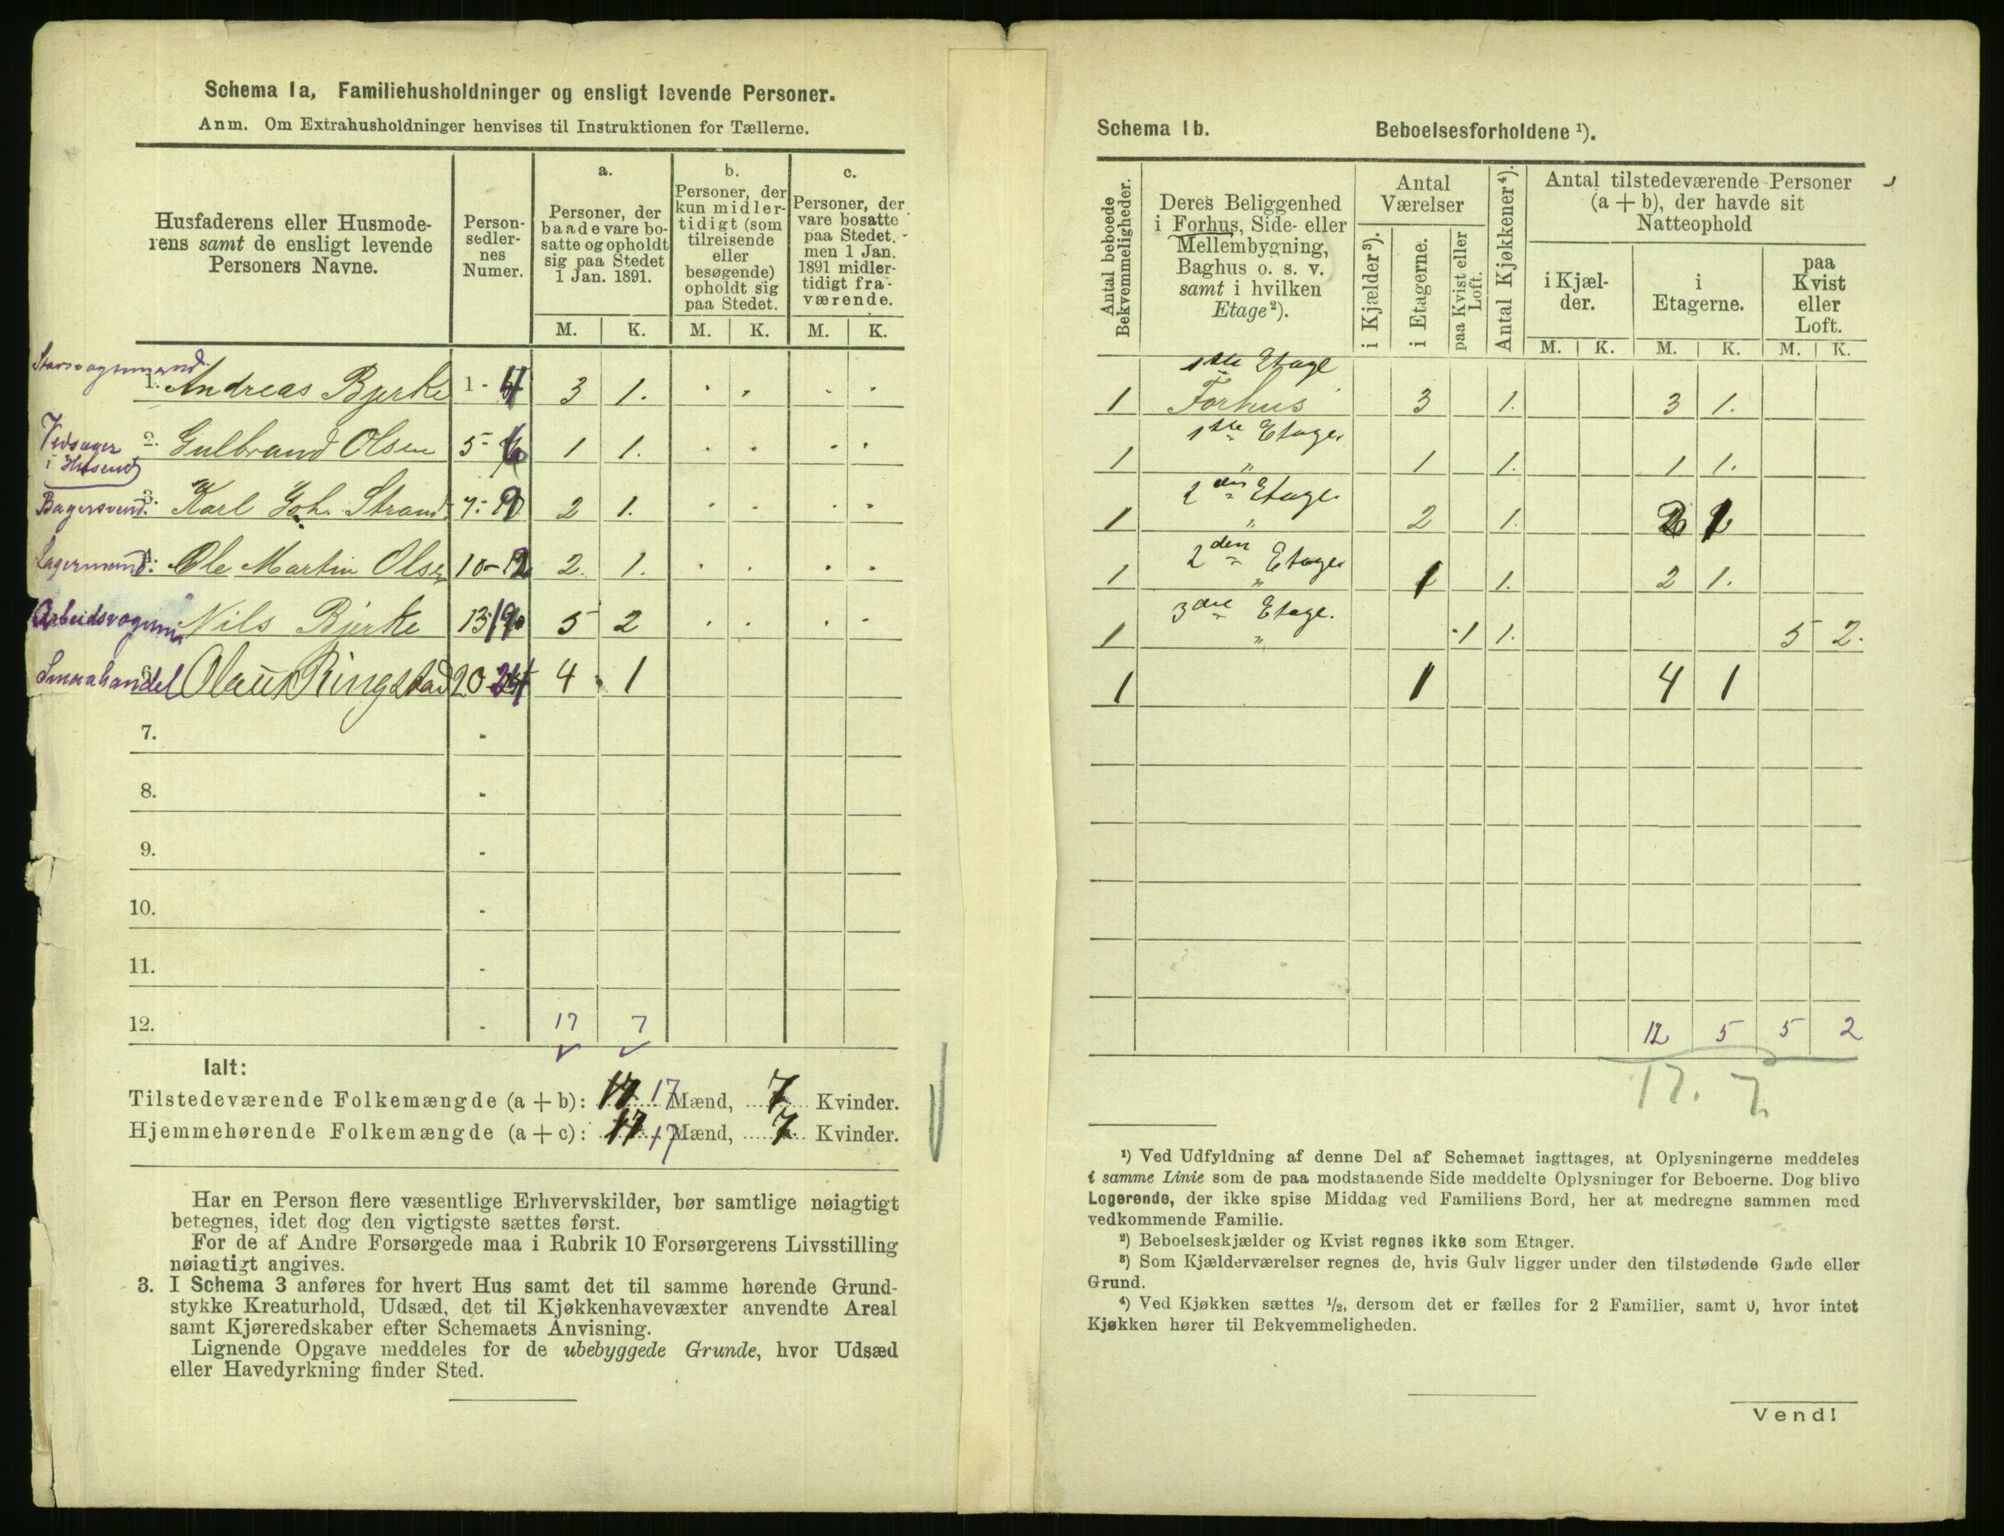 Schema 1a, Familiehusholdninger og ensligt levende Personer.
Anm. Om Extrahusholdninger henvises til Instruktionen for Tællerne.
Husfaderens eller Husmoderens samt de ensligt levende Personers Navne.
Personsedlernes Numer.
a. Personer, der baade vare bosatte og opholdt sig paa Stedet 1 Jan. 1891.
b. Personer, der kun midlertidigt (som tilreisende eller besøgende) opholdt sig paa Stedet.
c. Personer, der vare bosatte paa Stedet, men 1 Jan. 1891 midlertidigt fraværende.
M. K. M. K. M. K.
1. Andreas Bjerke 1-4 3 1.
Vedsager
2. Gulbrand Olsen 5-6 1 1.
Bagersvend. 3. Karl Joh. Strand 7-9 2 1.
Lagermand. Ole Martin Olsen 10-12 2. 1.
Nils Bjerke 13-19 5 2
Smaahandel 6. Olaus Ringstad 20-24 4 1
7. -
8. -
9. -
10. -
11. -
12. - 17 7
Ialt:
Tilstedeværende Folkemængde (a + b): 17 17 Mænd, 7 Kvinder.
Hjemmehørende Folkemængde (a + c): 17 17 Mænd, 7 Kvinder.
Har en Person flere væsentlige Erhvervskilder, bør samtlige nøiagtigt
betegnes, idet dog den vigtigste sættes først.
For de af Andre Forsørgede maa i Rubrik 10 Forsørgerens Livsstilling
nøiagtigt angives.
3. I Schema 3 anføres for hvert Hus samt det til samme hørende Grund-
stykke Kreaturhold, Udsæd, det til Kjøkkenhavevæxter anvendte Areal
samt Kjøreredskaber efter Schemaets Anvisning.
Lignende Opgave meddeles for de ubebyggede Grunde, hvor Udsæd
eller Havedyrkning finder Sted.
Schema 1b. Beboelsesforholdene ¹).
Antal beboede Bekvemmeligheder.
Deres Beliggenhed i Forhus, Side- eller Mellembygning, Baghus o. s. v. samt i hvilken Etage ²).
Antal Værelser
i Kjælder ³).
i Etagerne.
paa Kvist eller Loft.
Antal Kjøkkener ⁴).
Antal tilstedeværende Personer (a + b), der havde sit Natteophold
i Kjælder.
i Etagerne.
paa Kvist eller Loft.
M. K. M. K. M. K.
1ste Etage
1 Forhus 3 1. 3 1.
1ste Etage
1 " 1 1. 1 1.
2den Etage.
1 " 2 1. 2 1
2den Etage
1 " 1 1. 2 1.
3die Etage.
1 " 1 1. 5 2.
1 1 4 1
12 5 5 2
17. 7.
¹) Ved Udfyldning af denne Del af Schemaet iagttages, at Oplysningerne meddeles
i samme Linie som de paa modstaaende Side meddelte Oplysninger for Beboerne. Dog blive
Logerende, der ikke spise Middag ved Familiens Bord, her at medregne sammen med
vedkommende Familie.
²) Beboelseskjælder og Kvist regnes ikke som Etager.
³) Som Kjælderværelser regnes de, hvis Gulv ligger under den tilstødende Gade eller
Grund.
⁴) Ved Kjøkken sættes ½, dersom det er fælles for 2 Familier, samt 0, hvor intet
Kjøkken hører til Bekvemmeligheden.
Vend!